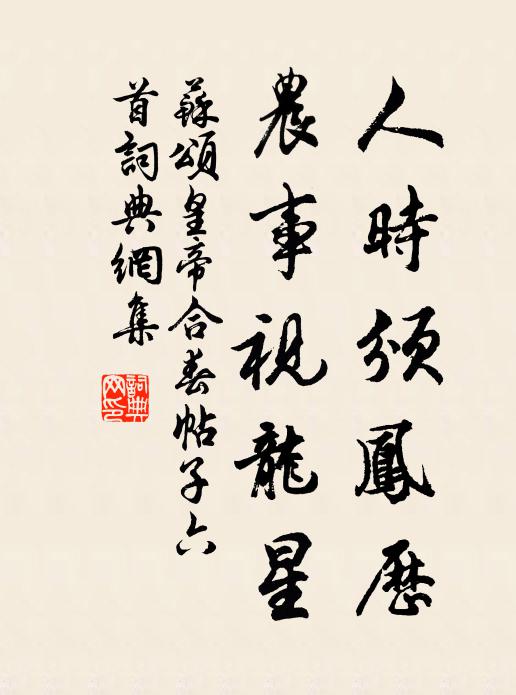 人時頒鳳歷
農事視龍星
蘇頌皇帝合春帖子六
首詞典網集
詞典網印